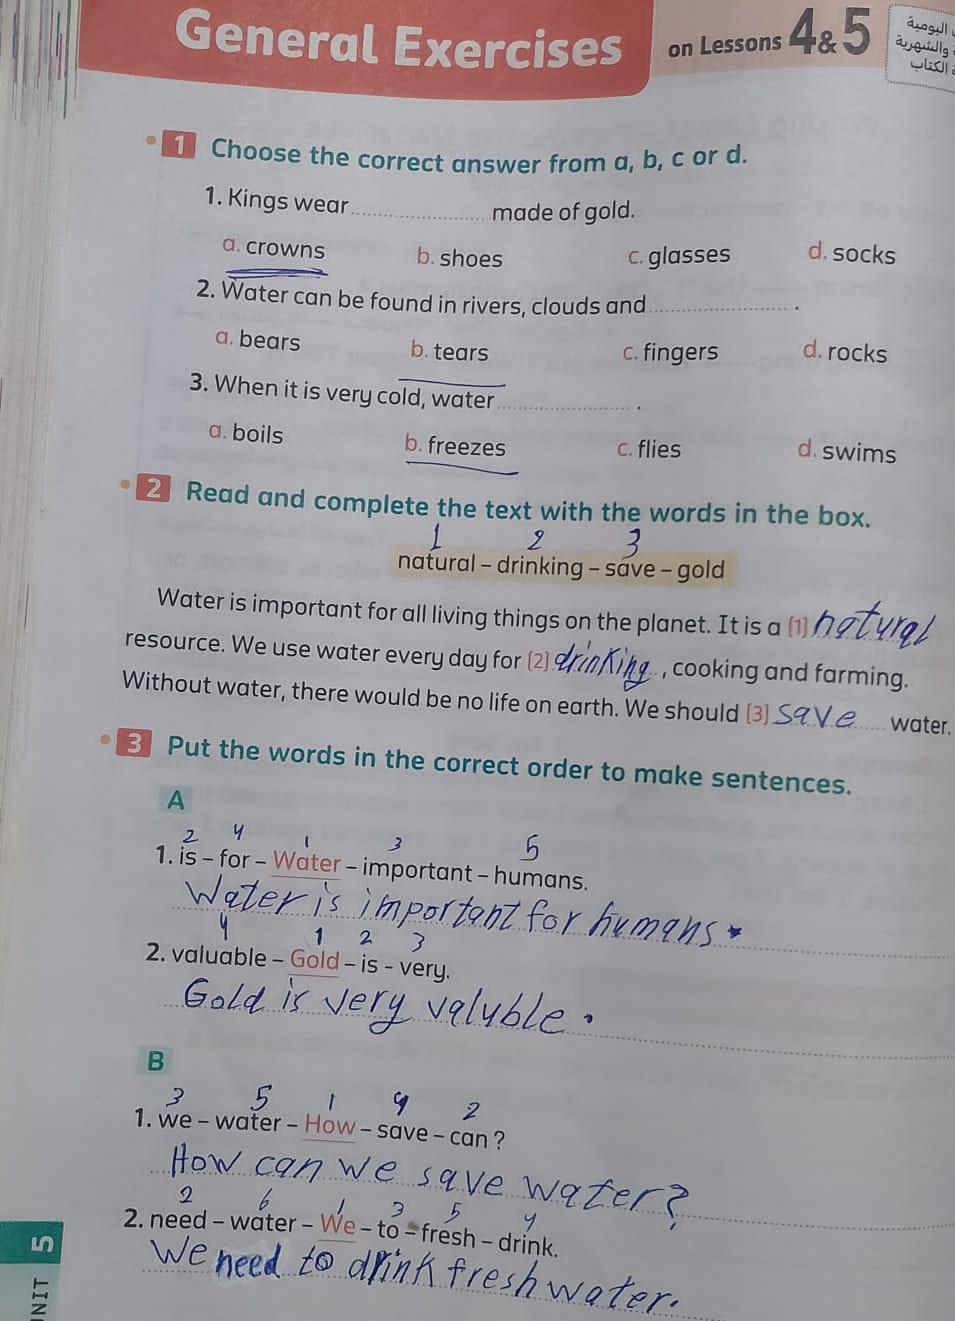 General Exercises on Lessons 4&5
اليومية
والشهرية
الكتاب
1 Choose the correct answer from a, b, c or d.
1. Kings wear .................... made of gold.
a. crowns b. shoes c. glasses d. socks
2. Water can be found in rivers, clouds and .................... .
a. bears b. tears c. fingers d. rocks
3. When it is very cold, water .................... .
a. boils b. freezes c. flies d. swims
2 Read and complete the text with the words in the box.
1 2 3
natural – drinking – save – gold
Water is important for all living things on the planet. It is a (1) natural
resource. We use water every day for (2) drinking , cooking and farming.
Without water, there would be no life on earth. We should (3) save water.
3 Put the words in the correct order to make sentences.
A
2 4 1 3 5
1. is – for – Water – important – humans.
Water is important for humans.
4 1 2 3
2. valuable – Gold – is - very.
Gold is very valuble.
B
3 5 1 4 2
1. we – water – How – save – can ?
How can we save water?
2 6 1 3 5 4
2. need – water – We – to – fresh – drink.
We need to drink fresh water.
UNIT 5